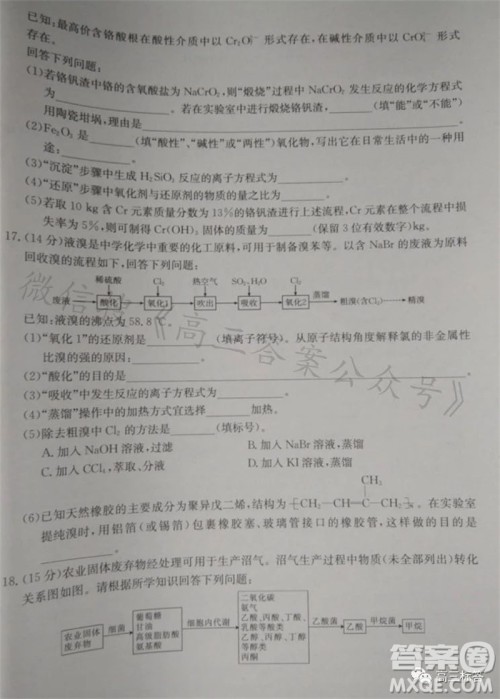 已知:最高价含铬酸根在酸性介质中以 Cr₂O₇²⁻ 形式存在,在碱性介质中以 CrO₄²⁻ 形式
存在。
回答下列问题:
(1)若铬钒渣中铬的含氧酸盐为 NaCrO₂,则“煅烧”过程中 NaCrO₂ 发生反应的化学方程式
为 。若在实验室中进行煅烧铬钒渣, (填“能”或“不能”)
用陶瓷坩埚,理由是 。
(2)Fe₂O₃ 是 (填“酸性”、“碱性”或“两性”)氧化物,写出它在日常生活中的一种用
途: 。
(3)“沉淀”步骤中生成 H₂SiO₃ 反应的离子方程式为 。
(4)“还原”步骤中氧化剂与还原剂的物质的量之比为 。
(5)若取 10 kg 含 Cr 元素质量分数为 13%的铬钒渣进行上述流程,Cr 元素在整个流程中损
失率为 5%,则可制得 Cr(OH)₃ 固体的质量为 (保留 3 位有效数字)kg。
17.(14 分)液溴是中学化学中重要的化工原料,可用于制备溴苯等。以含 NaBr 的废液为原料
回收溴的流程如下,回答下列问题:
稀硫酸 Cl₂ 热空气 SO₂、H₂O Cl₂
废液 酸化 氧化1 吹出 吸收 氧化2 蒸馏 粗溴(含Cl₂) 精溴
已知:液溴的沸点为 58.8 ℃。
(1)“氧化 1”的还原剂是 (填离子符号)。从原子结构角度解释氯的非金属性
比溴的强的原因: 。
(2)“酸化”的目的是 。
(3)“吸收”中发生反应的离子方程式为 。
(4)“蒸馏”操作中的加热方式宜选择 加热。
(5)除去粗溴中 Cl₂ 的方法是 (填标号)。
A. 加入 NaOH 溶液,过滤 B. 加入 NaBr 溶液,蒸馏
C. 加入 CCl₄,萃取、分液 D. 加入 KI 溶液,蒸馏
CH₃
(6)已知天然橡胶的主要成分为聚异戊二烯,结构为 [CH₂—CH=C—CH₂]。在实验室
提纯溴时,用铝箔(或锡箔)包裹橡胶塞、玻璃管接口的橡胶管,这样做的目的是
。
18.(15 分)农业固体废弃物经处理可用于生产沼气。沼气生产过程中物质(未全部列出)转化
关系图如图。请根据所学知识回答下列问题:
农业固体
废弃物
细菌
葡萄糖
甘油
高级脂肪酸
氨基酸
细胞内代谢
二氧化碳
氨气
乙酸、丙酸、丁酸、
乳酸等酸类
乙醇、丙醇、丁醇
等醇类
丙酮
乙酸菌 乙酸 甲烷菌 甲烷
微信搜《高三答案公众号》
答案圈
MXQE.COM